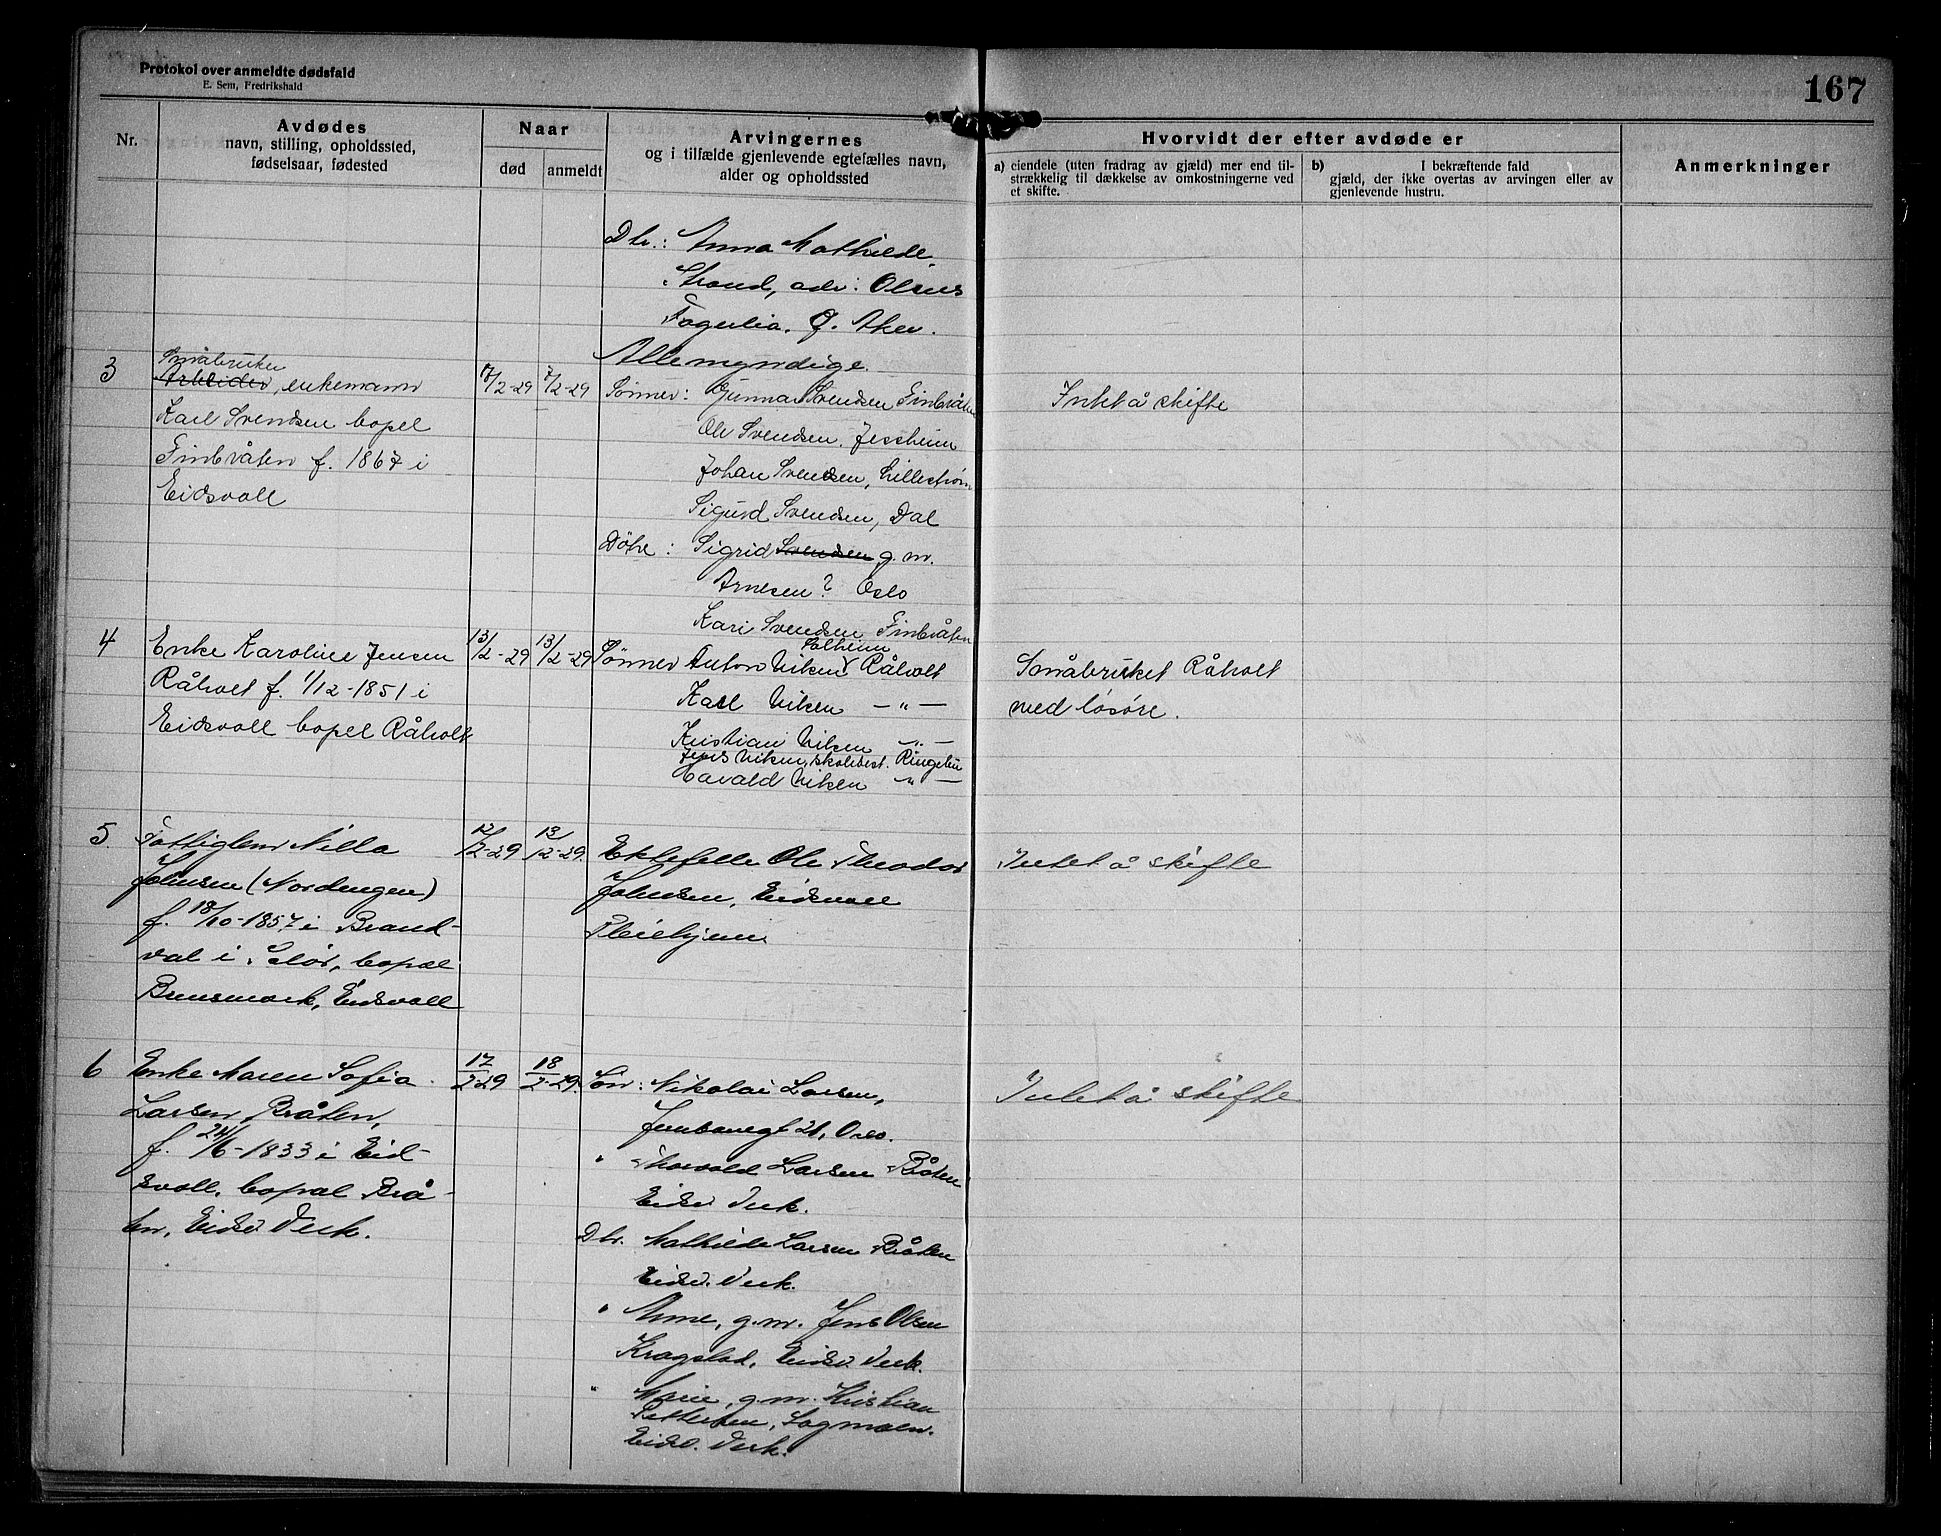 Protokol over anmeldte dødsfald
E. Sem, Fredrikshald
167
Nr.
Avdødes
navn, stilling, opholdssted,
fødselsaar, fødested
Naar
død
anmeldt
Arvingernes
og i tilfælde gjenlevende egtefælles navn,
alder og opholdssted
Hvorvidt der efter avdøde er
a) eiendele (uten fradrag av gjæld) mer end til-
strækkelig til dækkelse av omkostningerne ved
et skifte.
b) I bekræftende fald
gjæld, der ikke overtas av arvingen eller av
gjenlevende hustru.
Anmerkninger
Dtr.: Anna Mathilde
Strand, adr: Olsens
Fagerlia. Ø. Aker.
Alle myndige.
3
Småbruker
Arbeider, enkemann
Karl Svendsen bopel
Finbråten f. 1867 i
Eidsvoll
/2-29
7/2-29
Sønner: Gunnar Svendsen Finbråten
Ole Svendsen, Jessheim
Johan Svendsen, Lillestrøm
Sigurd Svendsen, Dal
Døtre: Sigrid Svendsen g.m.
Arnesen? Oslo
Kari Svendsen Finbråten
Intet å skifte
4
Enke Karoline Jensen
Råholt f. 1/12-1851 i
Eidsvoll bopel Råholt
13/2-29
13/2-29
Solheim
Sønner Anton Nilsen Råholt
Karl Nilsen — „ —
Kristian Nilsen — „ —
Jens Nilsen, skolebest. Ringebu
Harald Nilsen „ —
Småbruket Råholt
med løsøre.
5
Fattiglem Nilla
Johnsen (Nordengen)
f. 18/10-1857 i Brand-
val i Solør, bopæl
Bunsmark, Eidsvoll
12/2-29
13/2-29.
Ektefelle Ole Theodor
Johnsen, Eidsvoll
Pleiehjem
Intet å skifte
6
Enke Maren Sofia
Larsen, Bråten,
f. 24/6-1833 i Eid-
svoll, bopæl Brå-
ten, Eidsv. Verk.
17/2-29
18/2-29.
Søn: Nikolai Larsen,
Jernbanegt 21, Oslo.
" Thorvald Larsen Bråten
Eidsv Verk.
Dtr. Mathilde Larsen Bråten
Eidsv. Verk.
" Anne, g.m. Jens Olsen
Kragstad, Eidsv. Verk.
" Marie, g.m. Kristian
Pettersen, Lagmoen.
Eidsv. Verk.
Intet å skifte